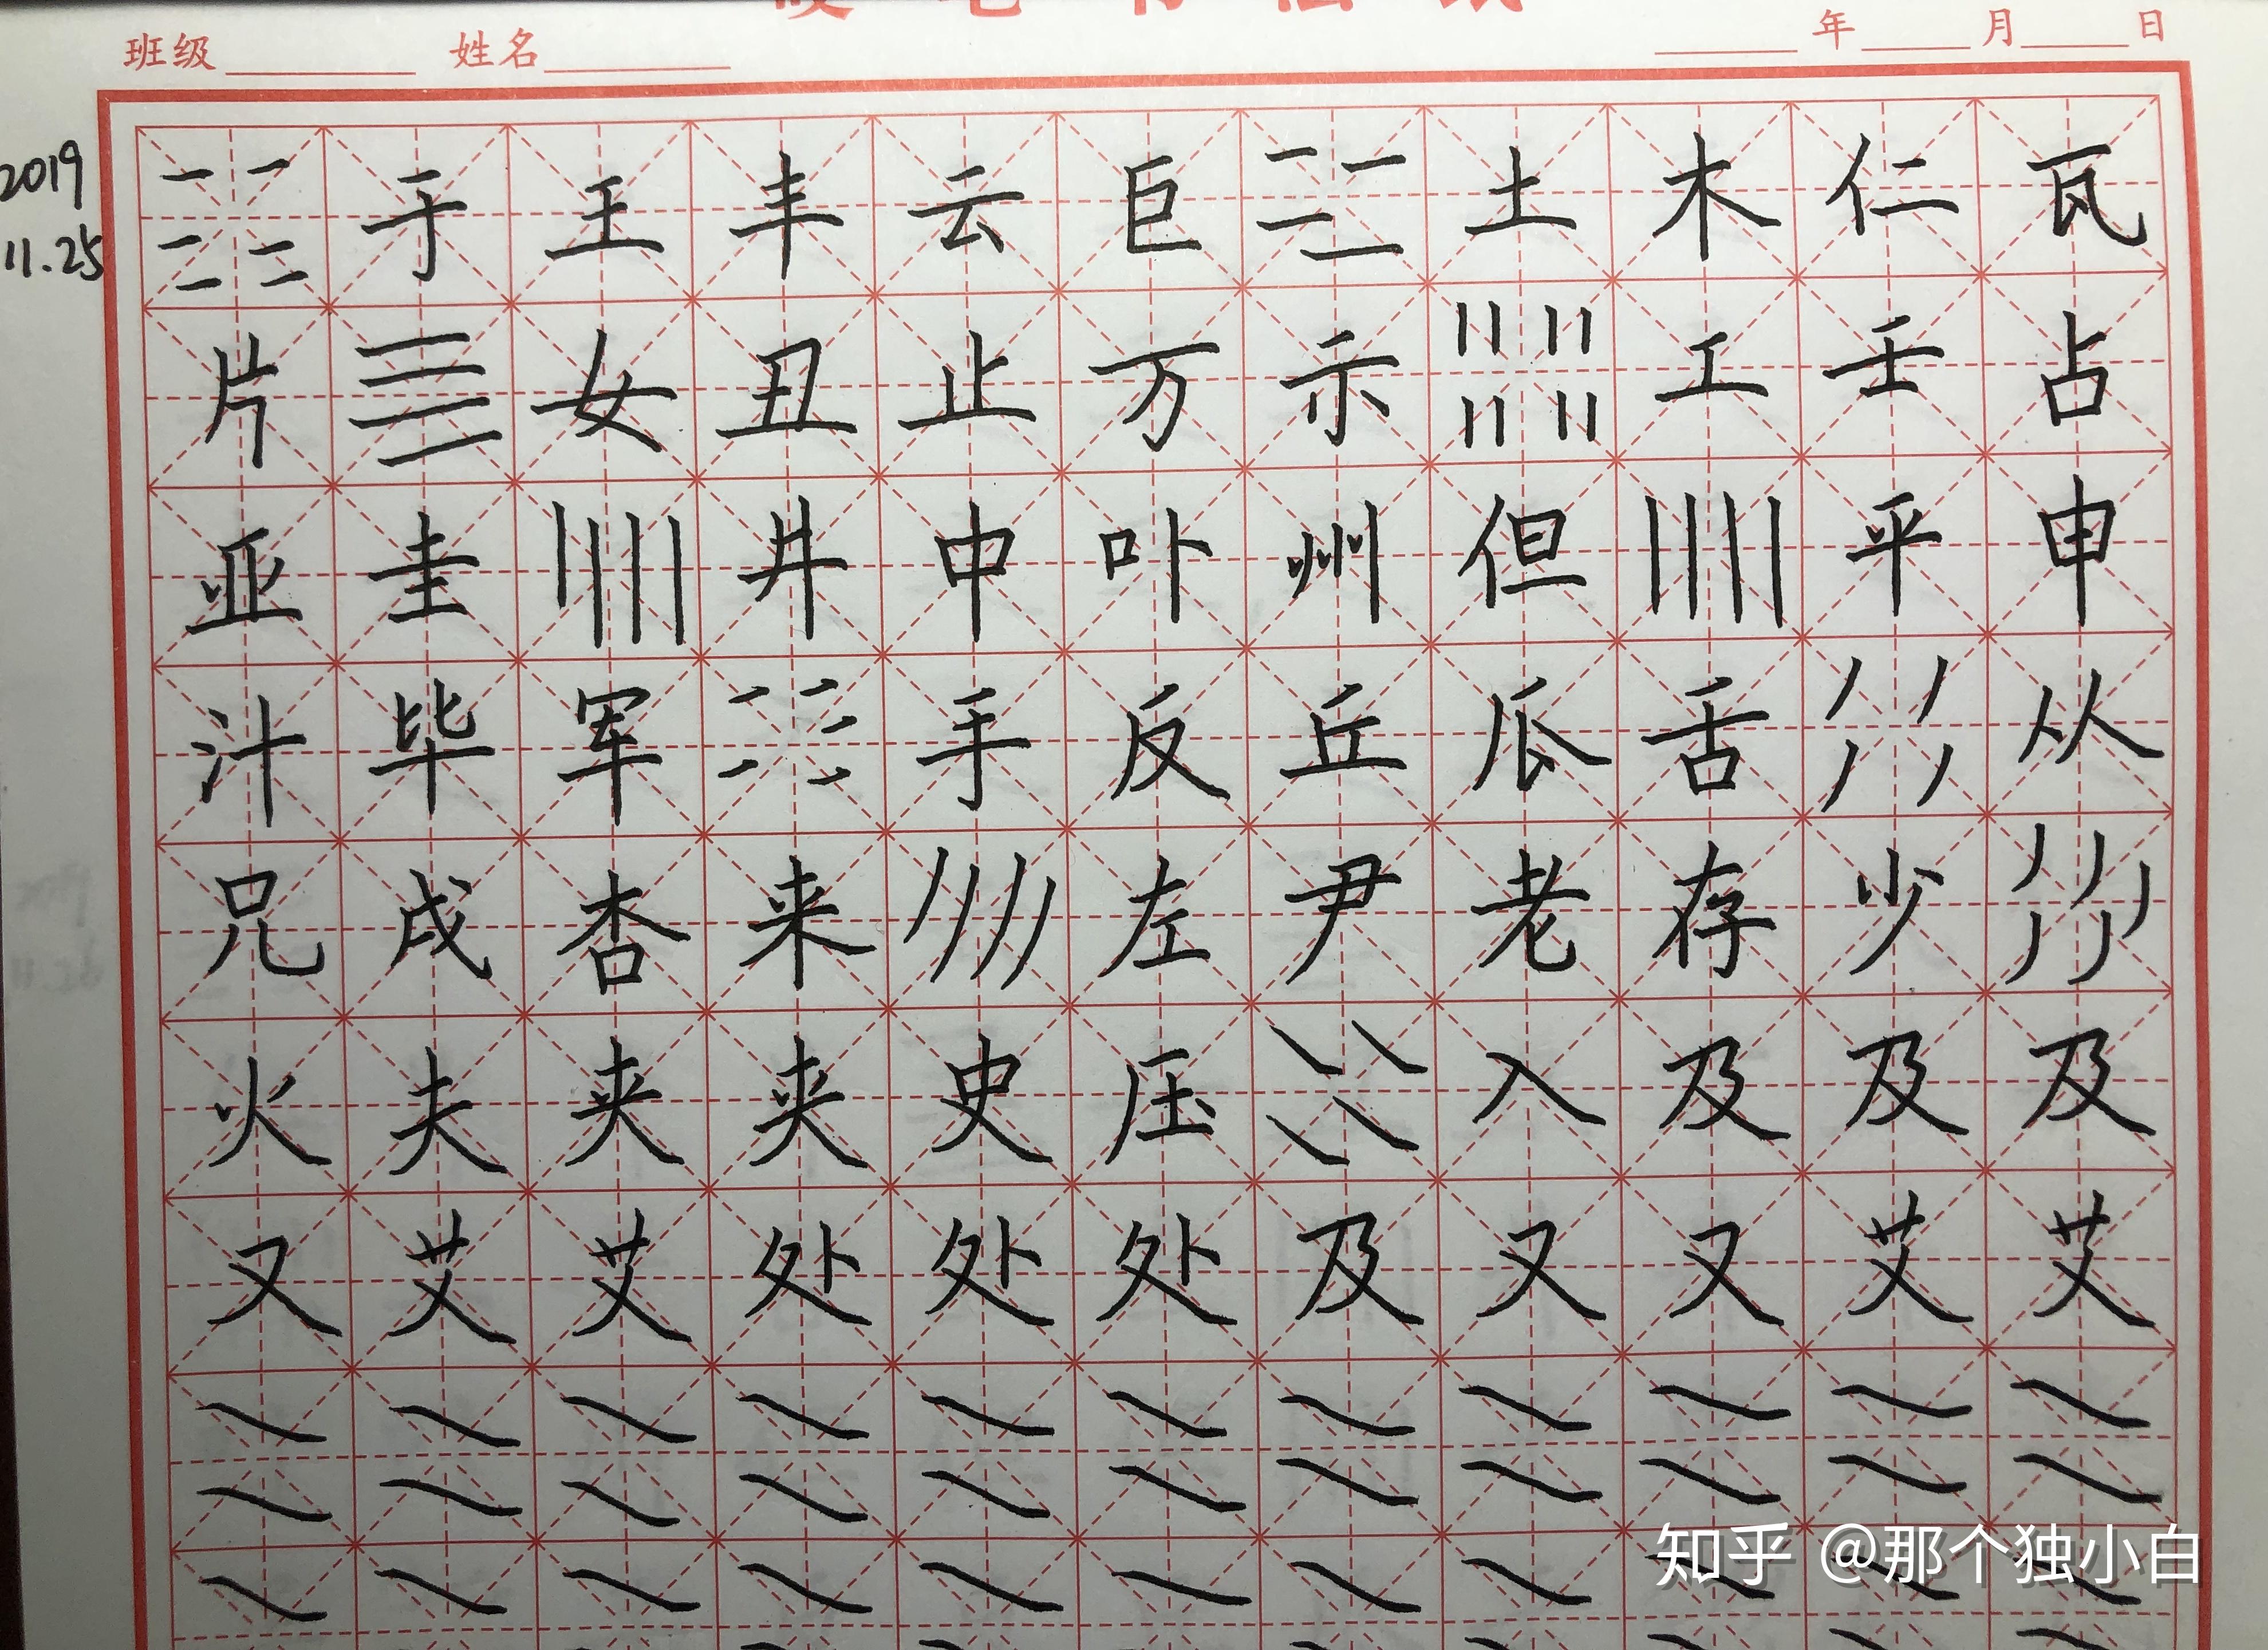 班级 姓名 年 月 日
2019
11.25
于 王 丰 云 巨 土 木 仁 瓦
片 女 丑 止 万 示 工 壬 占
亚 圭 井 中 卟 州 但 平 申
汁 毕 军 手 反 丘 瓜 舌 从
兄 成 杏 来 左 尹 老 存 少
火 夫 夹 夹 史 压 入 及 及 及
又 艾 艾 处 处 处 及 又 又 艾 艾
知乎 @那个独小白